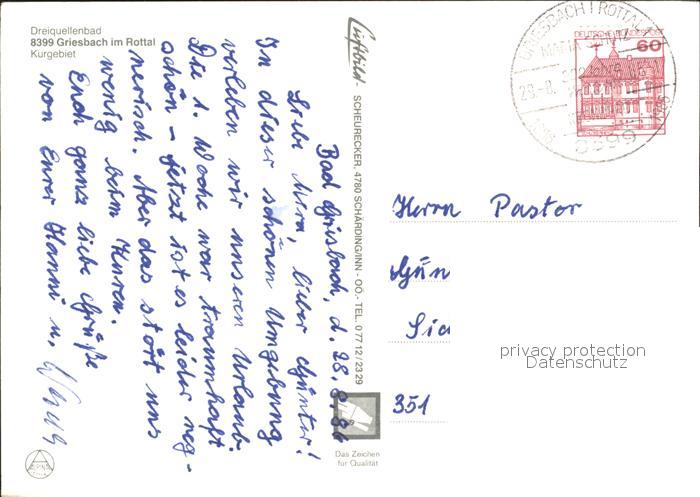 Dreiquellenbad
8399 Griesbach im Rottal
Kurgebiet
Luftbild - SCHEURECKER, 4780 SCHÄRDING/INN - OÖ. - TEL. 0 77 12 / 23 29
Bad Griesbach, d. 28.8.84
lieber Günter!
In dieser schönen Umgebung
verleben wir unseren Urlaub.
Die 1. Woche war traumhaft
schön - jetzt ist es leider reg-
nerisch. Aber das stört uns
wenig beim Kuren.
Euch ganz liebe Grüße
von Eurer Hanni u.
Das Zeichen
für Qualität
GRIESBACH I ROTTAL
DEUTSCHE BUNDESPOST
60
8399
Herrn Pastor
Gün
Sia
351
privacy protection
Datenschutz